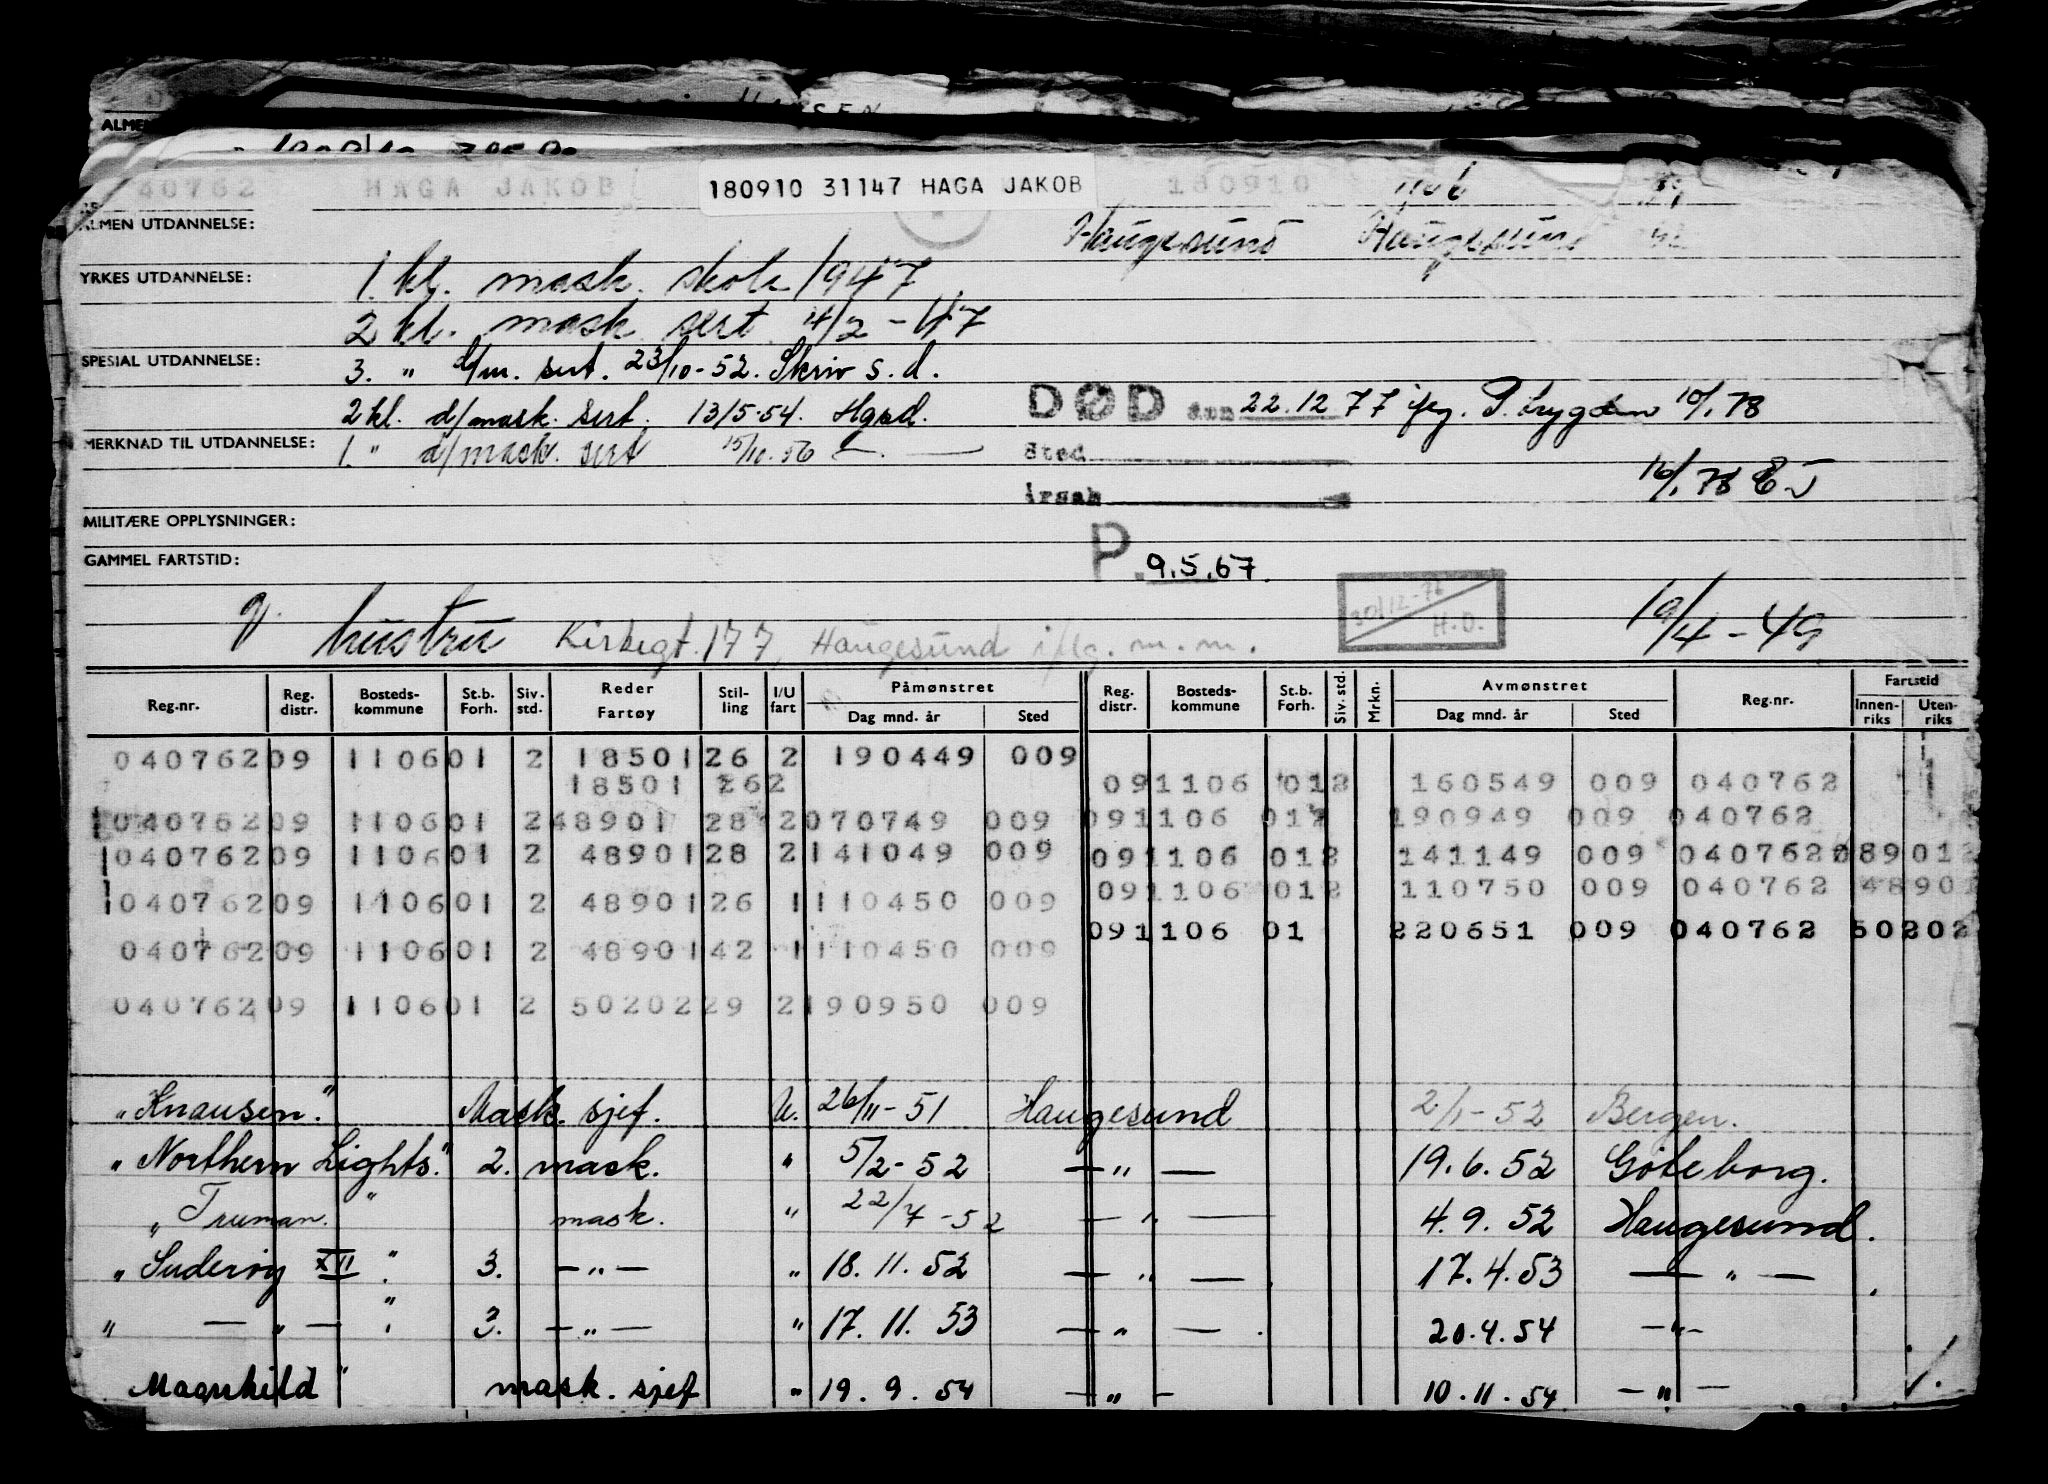 HANSEN
ALMEN
040762 HAGA JAKOB 180910 31147 HAGA JAKOB 180910
ALMEN UTDANNELSE: Haugesund Haugesund
YRKES UTDANNELSE: 1. kl. mask. skole 1947
2 kl. mask sert 4/2-47
SPESIAL UTDANNELSE: 3. " d/m. sert. 23/10-52. Skriv s.d.
2 kl. d/mask. sert. 13/5-54. Hgsd. DØD den 22.12 77 ifg. P. trygden 10/1 78
MERKNAD TIL UTDANNELSE: 1. " d/mask. sert 15/10.56 — " — Sted
årsak 16/1 78 EJ
MILITÆRE OPPLYSNINGER:
GAMMEL FARTSTID: P. 9.5.67.
30/12-76 H.O. 19/4-49
g. hustru Kirkegt. 177, Haugesund iflg. m.m.
Reg.nr. Reg. distr. Bosteds-kommune St.b. Forh. Siv. std. Reder Fartøy Stil-ling I/U fart Påmønstret Dag mnd. år Sted Reg. distr. Bosteds-kommune St.b. Forh. Siv. std. Mrkn. Avmønstret Dag mnd. år Sted Reg.nr. Fartstid Innen-riks Uten-riks
040762 09 1106 01 2 18501 26 2 190449 009
18501 26 2 09 1106 01 2 160549 009 040762
040762 09 1106 01 2 48901 28 2 070749 009 09 1106 01 2 190949 009 040762
040762 09 1106 01 2 48901 28 2 141049 009 09 1106 01 2 141149 009 040762 48901 2
040762 09 1106 01 2 48901 26 1 110450 009 09 1106 01 2 110750 009 040762 48901
040762 09 1106 01 2 48901 42 1 110450 009 09 1106 01 220651 009 040762 50202
040762 09 1106 01 2 50202 29 2 190950 009
"Knausen." Mask. sjef. U. 26/11-51 Haugesund 2/1-52 Bergen.
"Northern Lights." 2. mask. " 5/2-52 — " — 19.6.52 Göteborg.
"Truman." mask. " 22/7-52 — " — 4.9.52 Haugesund.
"Suderøy XII." 3. — " — " 18.11.52 — " — . 17.4.53 — " — .
" — " — ". 3. — " — " 17.11.53 — " — . 20.4.54 — " —
Magnhild" mask. sjef " 19.9.54 — " — 10.11.54 — " —